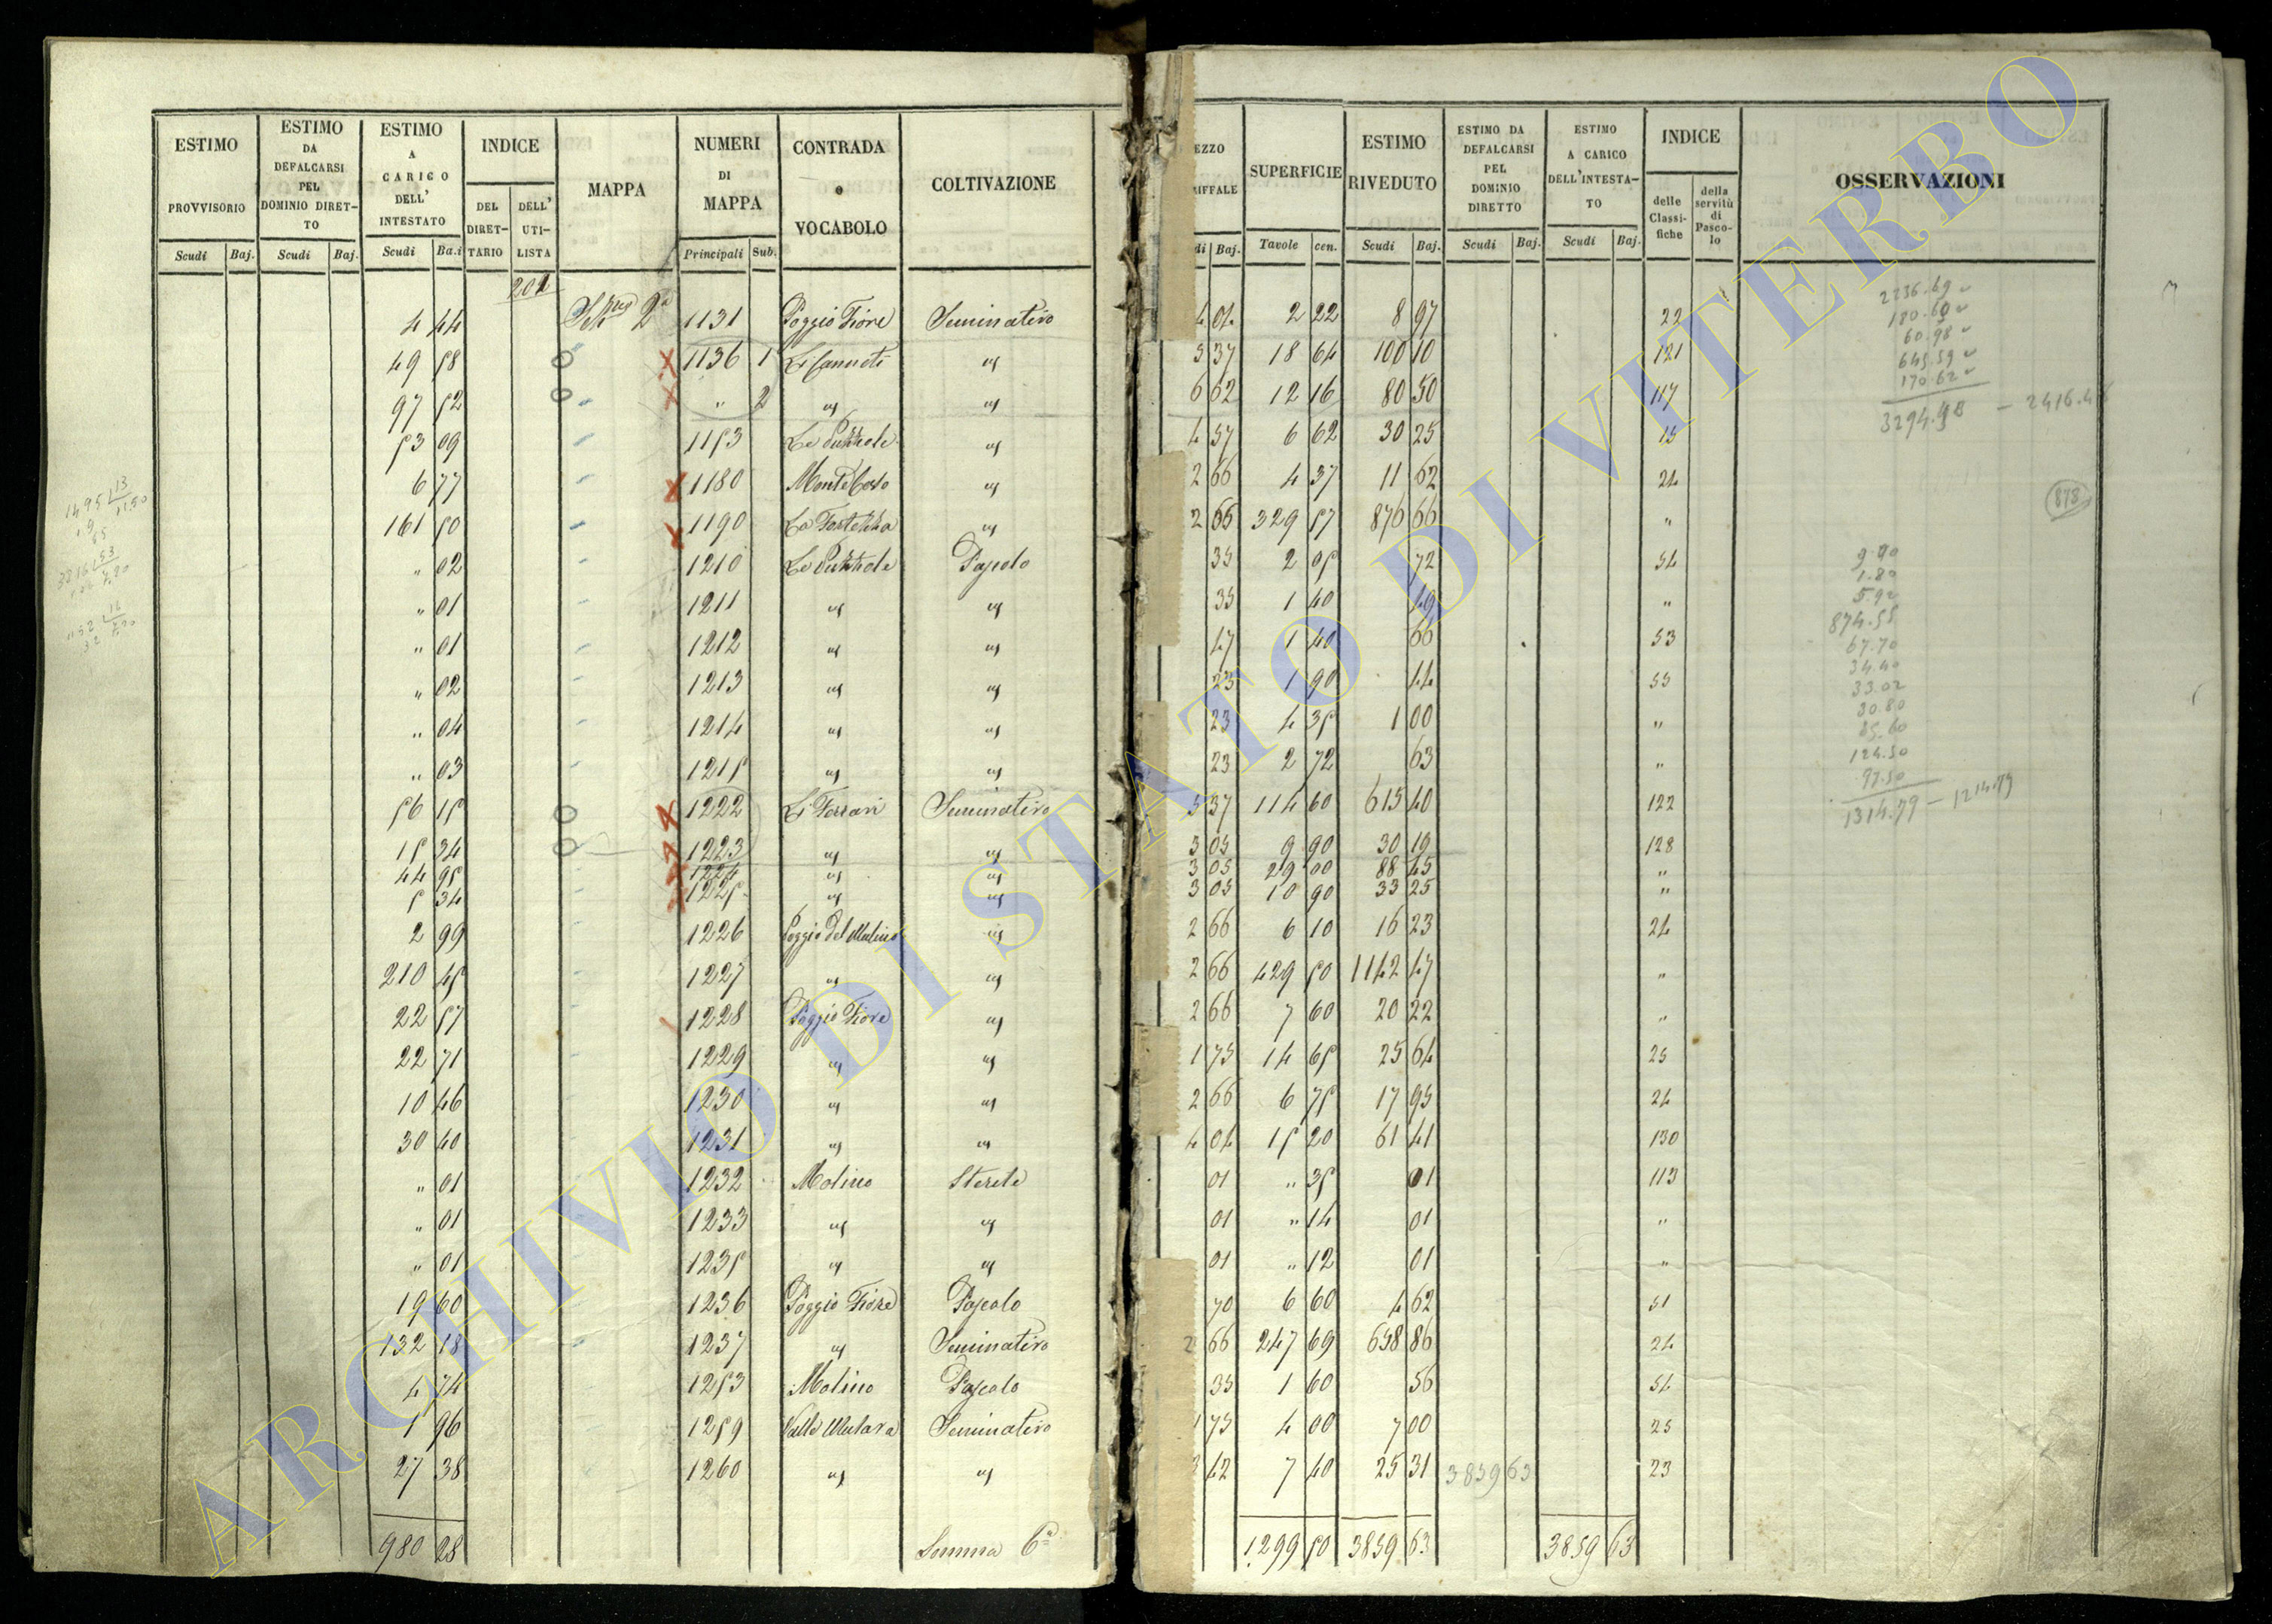 ESTIMO PROVVISORIO | ESTIMO DA DEFALCARSI PEL DOMINIO DIRETTO | ESTIMO A CARICO DELL' INTESTATO | INDICE | MAPPA | NUMERI DI MAPPA | CONTRADA o VOCABOLO | COLTIVAZIONE | EZZO IFFALE | SUPERFICIE | ESTIMO RIVEDUTO | ESTIMO DA DEFALCARSI PEL DOMINIO DIRETTO | ESTIMO A CARICO DELL'INTESTATO | INDICE | OSSERVAZIONI
Scudi Baj. | Scudi Baj. | Scudi Ba.i | DEL DIRETTARIO | DELL' UTILISTA | Principali Sub. | di Baj. | Tavole cen. | Scudi Baj. | Scudi Baj. | Scudi Baj. | delle Classifiche | della servitù di Pascolo
201
4 44 | 2a | 1131 | Poggio Fiore | Seminativo | 4 04 | 2 22 | 8 97 | 22
49 58 | 1136 1 | " | 5 37 | 18 64 | 100 10 | 121
97 52 | " 2 | " | " | 6 62 | 12 16 | 80 50 | 117
53 09 | 1153 | " | 4 57 | 6 62 | 30 25 | 15
6 77 | 1180 | " | 2 66 | 4 37 | 11 62 | 24
161 50 | 1190 | " | 2 66 | 329 57 | 876 66 | "
" 02 | 1210 | Pascolo | 35 | 2 05 | 72 | 54
" 01 | 1211 | " | " | 35 | 1 40 | 49 | "
" 01 | 1212 | " | " | 47 | 1 40 | 66 | 53
" 02 | 1213 | " | " | 23 | 1 90 | 44 | 55
" 04 | 1214 | " | " | 23 | 4 35 | 1 00 | "
" 03 | 1215 | " | " | 23 | 2 72 | 63 | "
56 15 | 1222 | Li Ferrari | Seminativo | 5 37 | 114 60 | 615 40 | 122
15 34 | 1223 | " | " | 3 05 | 9 90 | 30 19 | 128
44 95 | 1224 | " | " | 3 05 | 29 00 | 88 45 | "
5 34 | 1225 | " | " | 3 05 | 10 90 | 33 25 | "
2 99 | 1226 | Poggio del Molino | " | 2 66 | 6 10 | 16 23 | 24
210 45 | 1227 | " | " | 2 66 | 429 50 | 1142 47 | "
22 57 | 1228 | Poggio Fiore | " | 2 66 | 7 60 | 20 22 | "
22 71 | 1229 | " | " | 1 75 | 14 65 | 25 64 | 25
10 46 | 1230 | " | " | 2 66 | 6 75 | 17 95 | 24
30 40 | 1231 | " | " | 4 04 | 15 20 | 61 41 | 130
" 01 | 1232 | Molino | Sterile | 01 | " 35 | 01 | 113
" 01 | 1233 | " | " | 01 | " 14 | 01 | "
" 01 | 1235 | " | " | 01 | " 12 | 01 | "
19 60 | 1236 | Poggio Fiore | Pascolo | 70 | 6 60 | 4 62 | 51
132 18 | 1237 | " | Seminativo | 2 66 | 247 69 | 658 86 | 24
4 74 | 1253 | Molino | Pascolo | 35 | 1 60 | 56 | 54
1 96 | 1259 | Valle Mulara | Seminativo | 1 75 | 4 00 | 7 00 | 25
27 38 | 1260 | " | " | 3 42 | 7 40 | 25 31 | 3859 63 | 23
980 28 | Somma 6a | 1299 50 | 3859 63 | 3859 63
2236.69
180.60
60.98
645.59
170.62
3294.48
878
9.90
1.80
5.92
874.55
67.70
34.40
33.02
30.80
35.60
124.50
97.50
1314.79 - 1214.79
ARCHIVIO DI STATO DI VITERBO